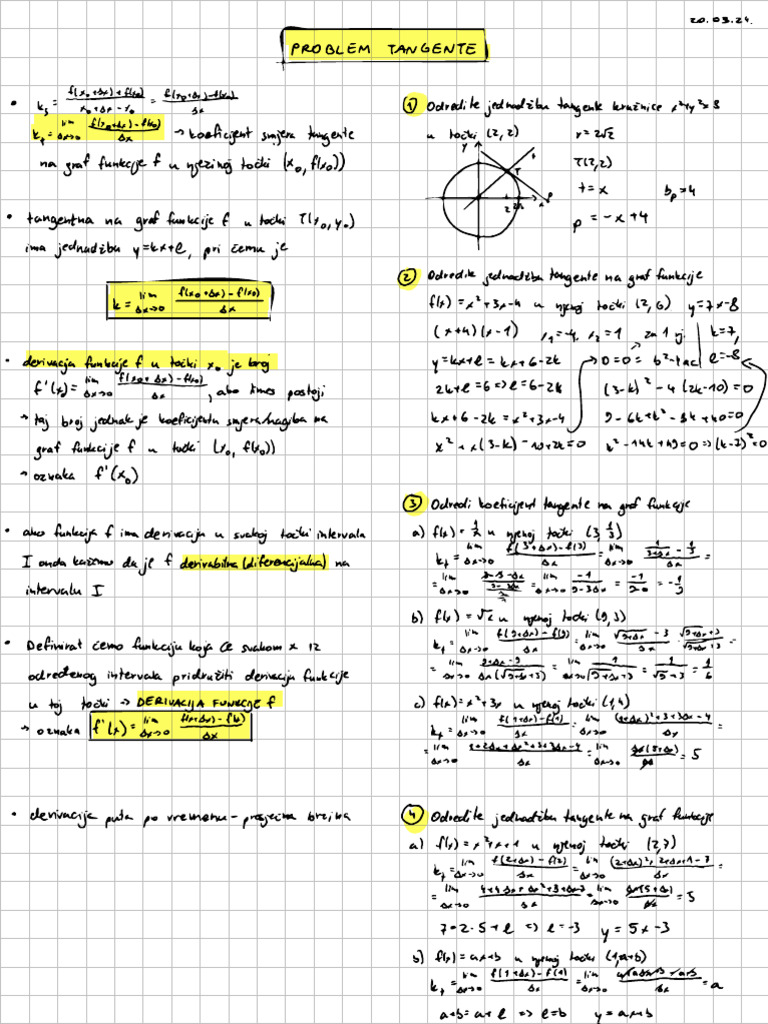 20.03.24.
PROBLEM TANGENTE
• k_s = (f(x₀+Δx)+f(x₀))/(x₀+Δx-x₀) = (f(x₀+Δx)-f(x₀))/Δx
k_t = lim Δx→0 (f(x₀+Δx)-f(x₀))/Δx → koeficijent smjera tangente
na graf funkcije f u njezinoj točki (x₀, f(x₀))
• tangentna na graf funkcije f u točki T(x₀,y₀)
ima jednadžbu y=kx+l, pri čemu je
k = lim Δx→0 (f(x₀+Δx)-f(x₀))/Δx
• derivacija funkcije f u točki x₀ je broj
f'(x) = lim Δx→0 (f(x₀+Δx)-f(x₀))/Δx, ako limes postoji
→ taj broj jednak je koeficijentu smjera/nagiba na
graf funkcije f u točki (x₀, f(x₀))
→ oznaka f'(x₀)
• ako funkcija f ima derivaciju u svakoj točki intervala
I onda kažemo da je f derivabilna (diferencijalna) na
intervalu I
• Definirat ćemo funkciju koja će svakom x iz
određenog intervala pridružiti derivaciju funkcije
u toj točki → DERIVACIJA FUNKCIJE f
→ oznaka f'(x) = lim Δx→0 (f(x+Δx)-f(x))/Δx
• derivacija puta po vremenu - prosječna brzina
① Odredite jednadžbu tangente kružnice x²+y²=8
u točki (2,2) r=2√2
y t T
T(2,2)
t=x b_p=4
2 2√2 x p
p=-x+4
② Odredite jednadžbu tangente na graf funkcije
f(x)=x²+3x-4 u njenoj točki (2,6) y=7x-8
(x+4)(x-1) x₁=-4, x₂=1 za 1 rj. k=7,
y=kx+l=kx+6-2k → D=0= b²-4ac l=-8
2k+l=6 ⇒ l=6-2k (3-k)²-4(2k-10)=0
kx+6-2k=x²+3x-4 9-6k+k²-8k+40=0
x²+x(3-k)-10+2k=0 k²-14k+49=0 ⇒ (k-7)²=0
③ Odredi koeficijent tangente na graf funkcije
a) f(x)=1/x u njenoj točki (3,1/3)
k_t = lim Δx→0 (f(3+Δx)-f(3))/Δx = lim Δx→0 (1/(3+Δx) - 1/3)/Δx =
= lim Δx→0 = lim Δx→0 -1/(9-3Δx) = -1/(9-0) = -1/9
b) f(x)=√x u njenoj točki (9,3)
k_t = lim Δx→0 (f(9+Δx)-f(9))/Δx = lim Δx→0 (√(9+Δx) - 3)/Δx · (√(9+Δx)+3)/(√(9+Δx)+3) =
= lim Δx→0 (9+Δx-9)/(Δx(√(9+Δx)+3)) = lim Δx→0 1/(√(9+Δx)+3) = 1/(√9+3) = 1/6
c) f(x)=x²+3x u njenoj točki (1,4)
k_t = lim Δx→0 (f(1+Δx)-f(1))/Δx = lim Δx→0 ((1+Δx)²+3+3Δx-4)/Δx =
= lim Δx→0 (1+2Δx+Δx²+3+3Δx-4)/Δx = lim Δx→0 Δx(5+Δx)/Δx = 5
④ Odredite jednadžbu tangente na graf funkcije
a) f(x)=x²+x+1 u njenoj točki (2,7)
k_t = lim Δx→0 (f(2+Δx)-f(2))/Δx = lim Δx→0 ((2+Δx)²+2+Δx+1-7)/Δx =
= lim Δx→0 (4+4Δx+Δx²+3+Δx-7)/Δx = lim Δx→0 Δx(5+Δx)/Δx = 5
7=2·5+l ⇒ l=-3 y=5x-3
b) f(x)=ax+b u njenoj točki (1,a+b)
k_t = lim Δx→0 (f(1+Δx)-f(1))/Δx = lim Δx→0 = a
a+b=a+l ⇒ l=b y=ax+b